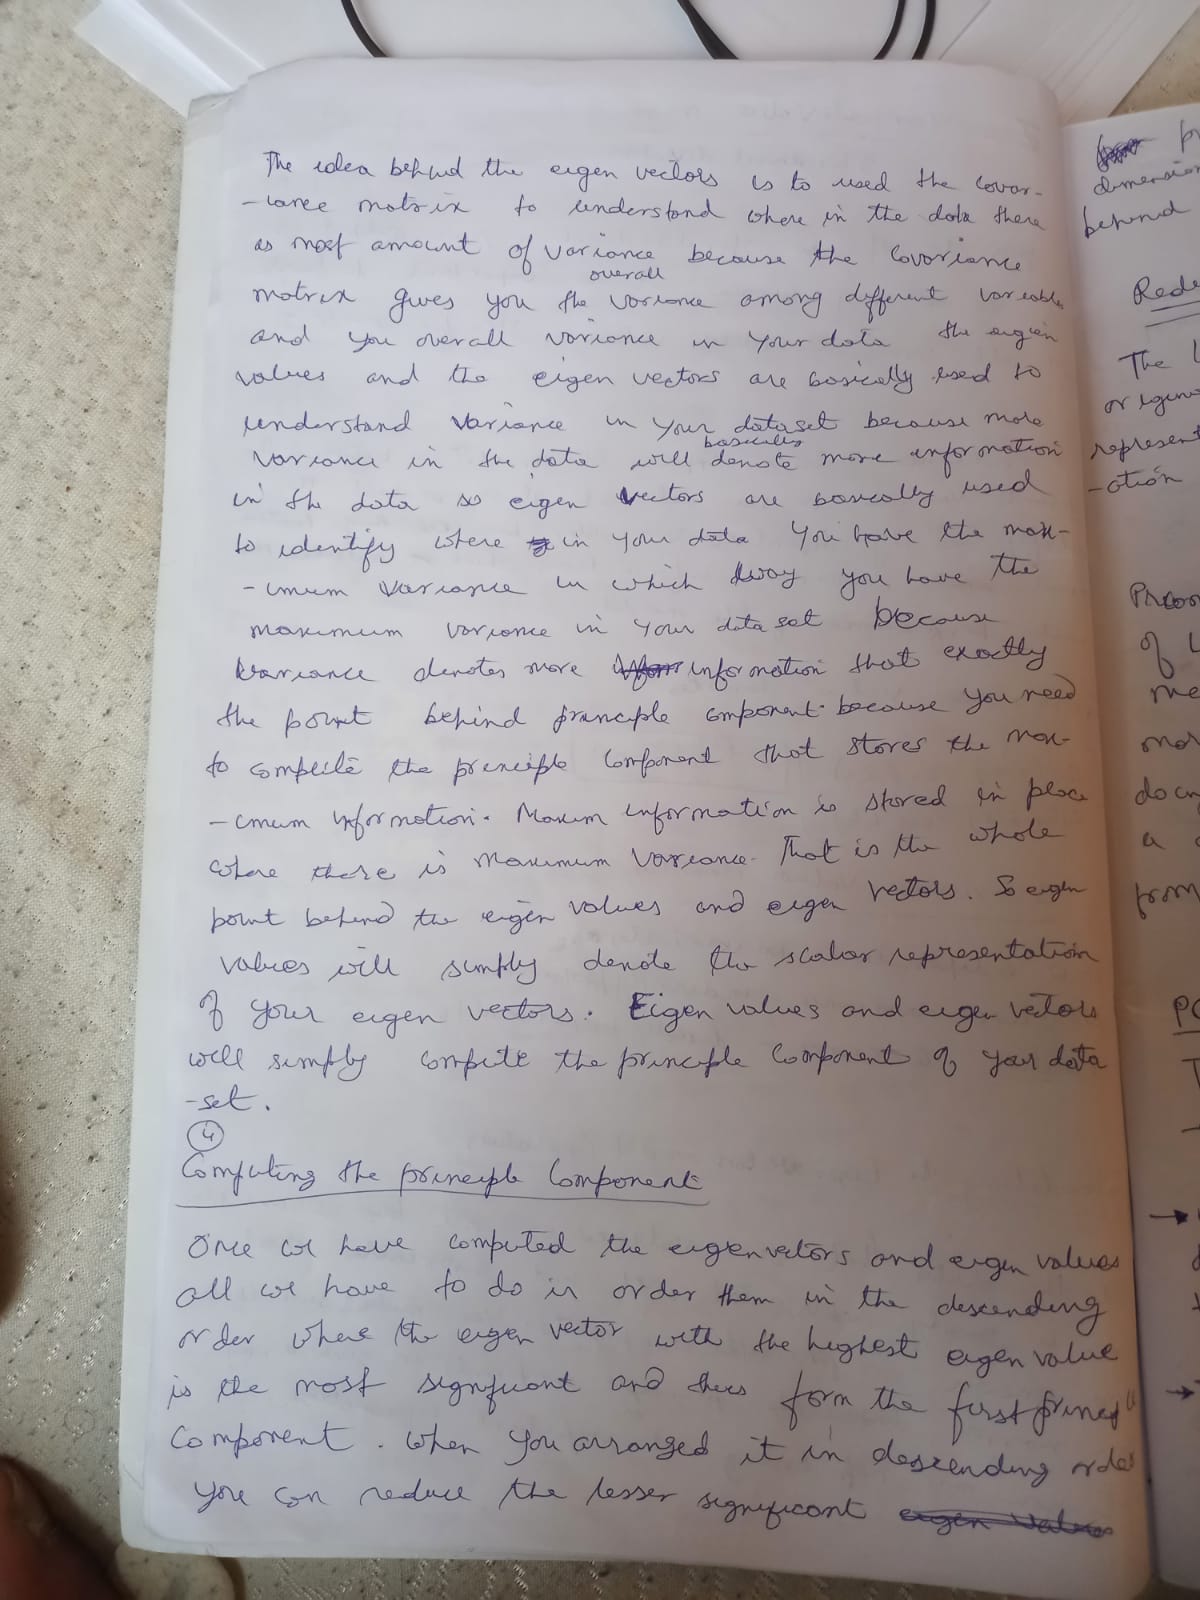 The idea behind the eigen vectors is to used the covar-
-iance matrix to understand where in the data there
is most amount of variance because the covariance
overall
matrix gives you the variance among different variables
and you overall variance in your data the eigen
values and the eigen vectors are basically used to
understand variance in your dataset because more
basically
variance in the data will denote more information
in the data so eigen vectors are basically used
to identify where in your data you have the max-
-imum variance in which way you have the
maximum variance in your data set because
variance denotes more information that exactly
the point behind principle component because you need
to compute the principle component that stores the max-
-imum information. Maxim information is stored in place
where there is maximum variance. That is the whole
point behind the eigen values and eigen vectors. So eigen
values will simply denote the scalar representation
of your eigen vectors. Eigen values and eigen vectors
will simply compute the principle component of your data
-set.
4
Computing the principle component
Once we have computed the eigen vectors and eigen values
all we have to do is order them in the descending
order where the eigen vector with the highest eigen value
is the most significant and thus form the first
component. When you arranged it in descending order
you can reduce the lesser significant
dimension
behind
The
represent
-ation
of
a
from